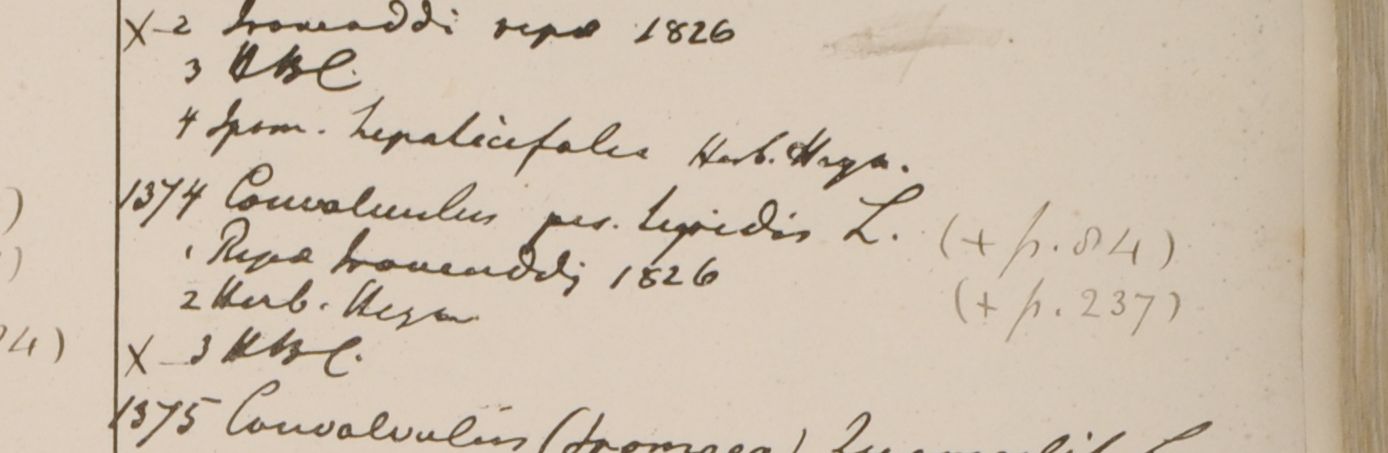 )
)
24)
X-2 Irawaddi ripæ 1826
3 HBC.
4 Ipom. hepaticifolia Herb. Heyn.
1374 Convolvulus pes. tigridis L. (+ p. 84)
1 Ripæ Irawaddi 1826 (+ p. 237)
2 Herb. Heyn
X-3 HBC.
1375 Convolvulus (Ipomoea) Quamoclit L